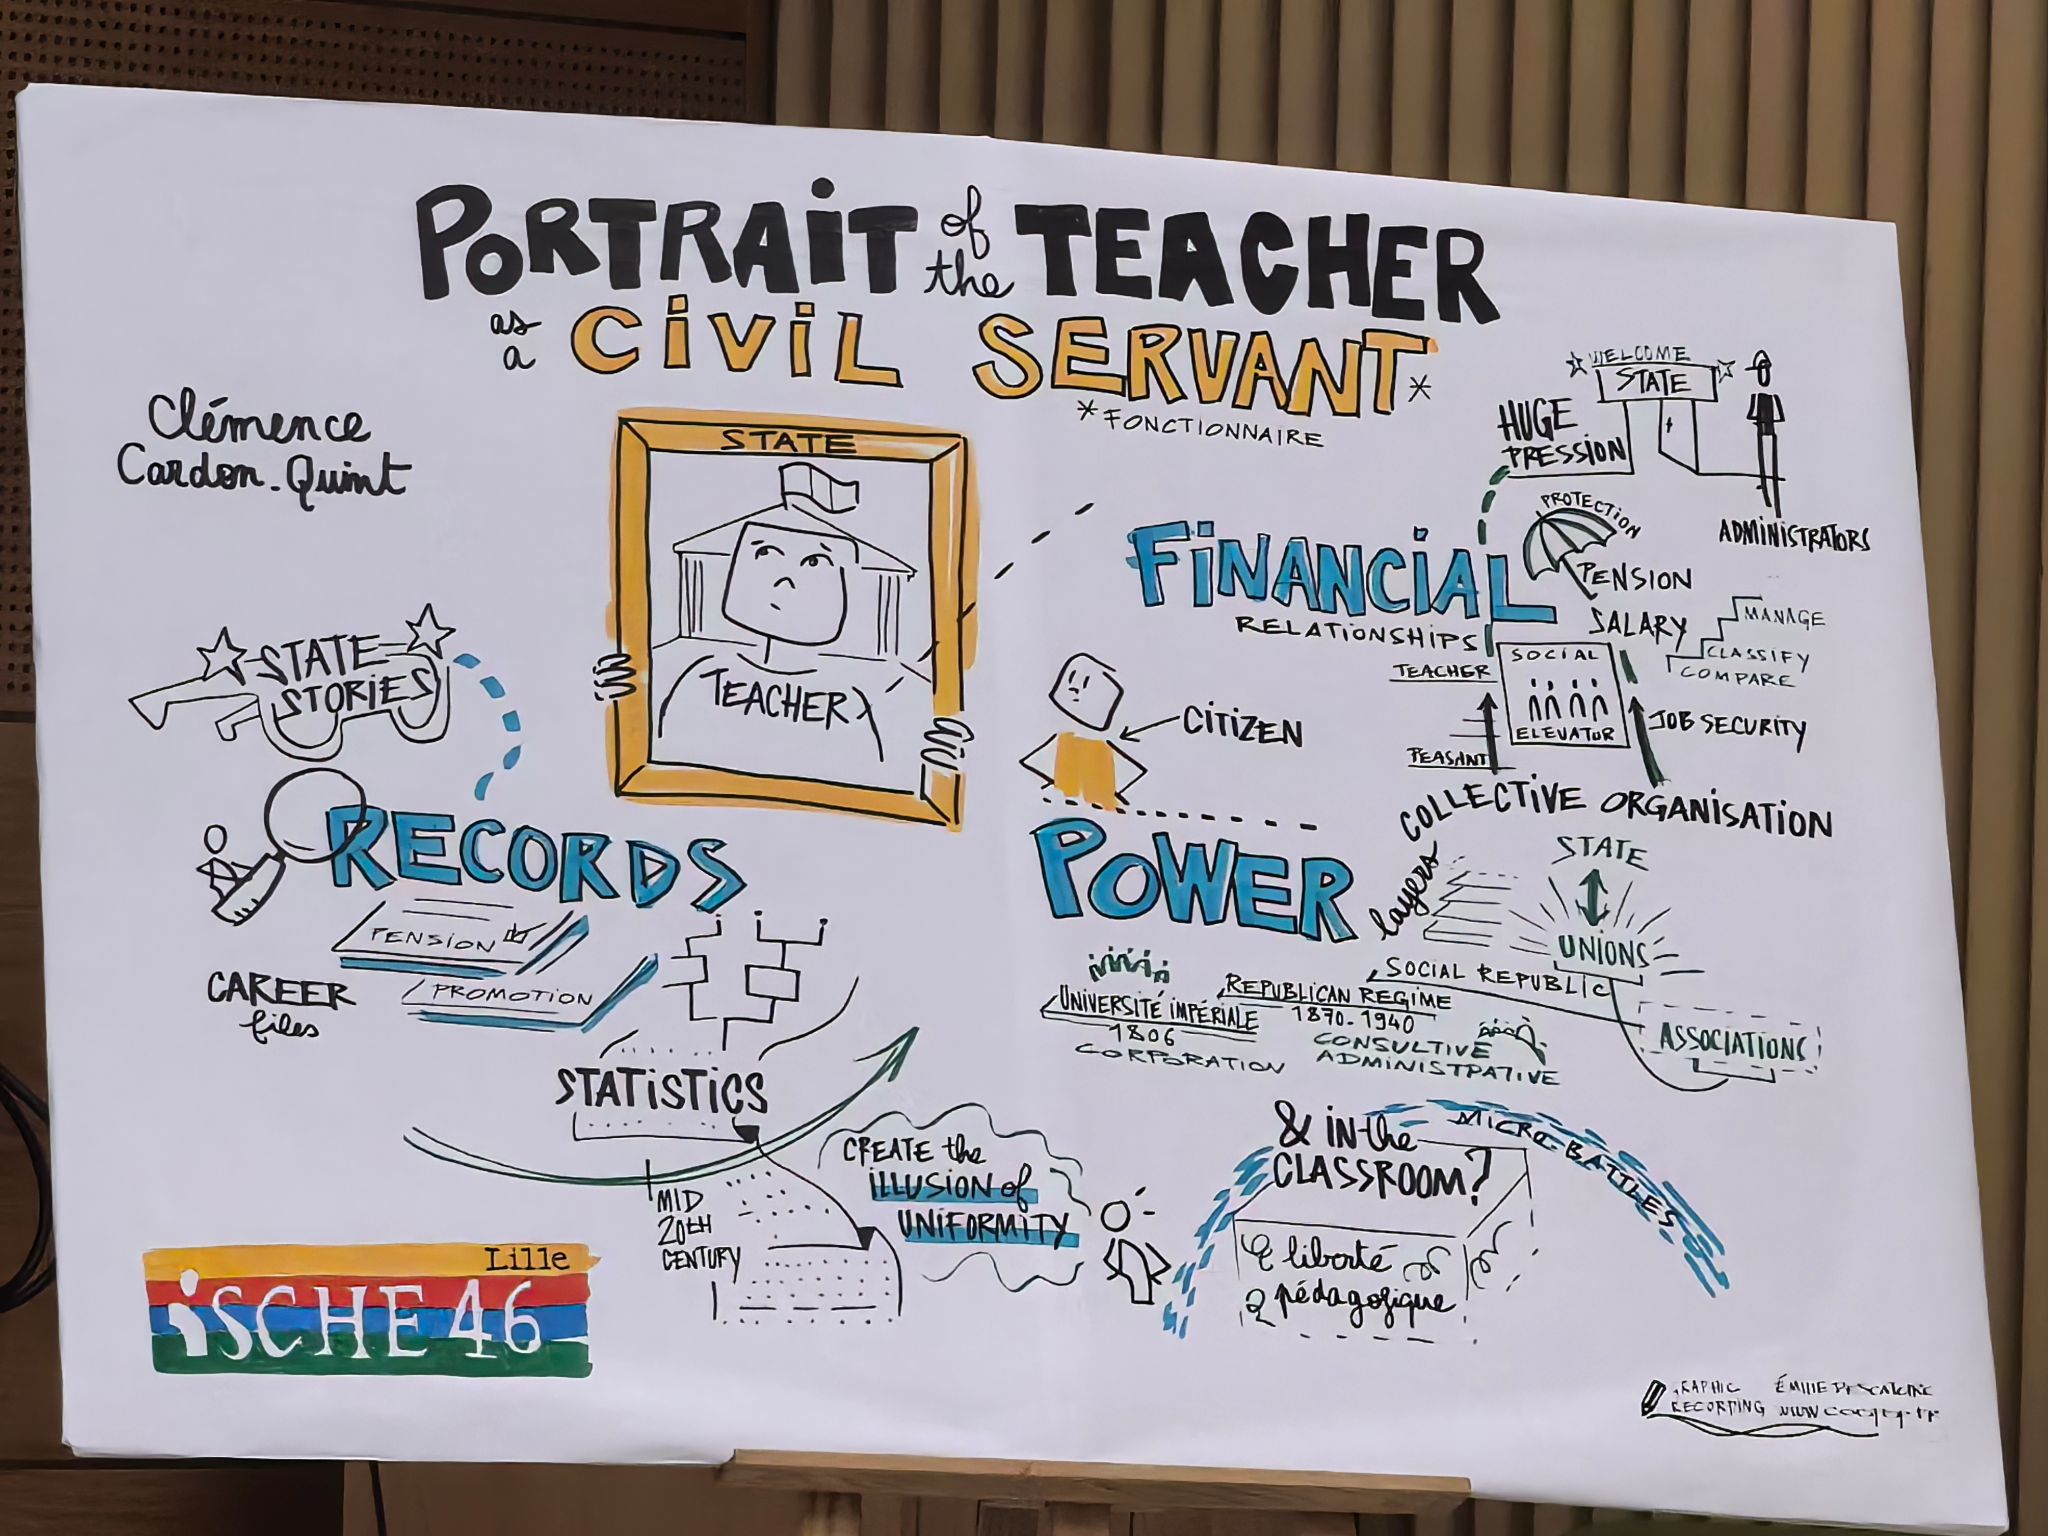 PORTRAIT of the TEACHER
as a CIVIL SERVANT*
*FONCTIONNAIRE
Clémence
Cardon-Quint
STATE
TEACHER
STATE
STORIES
RECORDS
PENSION
PROMOTION
CAREER
files
STATISTICS
MID
20TH
CENTURY
CREATE the
ILLUSION of
UNIFORMITY
CITIZEN
WELCOME
STATE
HUGE
PRESSION
ADMINISTRATORS
FINANCIAL
RELATIONSHIPS
PROTECTION
PENSION
SALARY
MANAGE
CLASSIFY
COMPARE
TEACHER
PEASANT
SOCIAL
ELEVATOR
JOB SECURITY
COLLECTIVE ORGANISATION
POWER
layers
STATE
UNIONS
ASSOCIATIONS
SOCIAL REPUBLIC
REPUBLICAN REGIME
1870-1940
CONSULTIVE
ADMINISTPATIVE
UNIVERSITÉ IMPÉRIALE
1806
CORPORATION
& in the
CLASSROOM?
MICRO-BATTLES
liberté
pédagogique
Lille
iSCHE 46
RECORDING